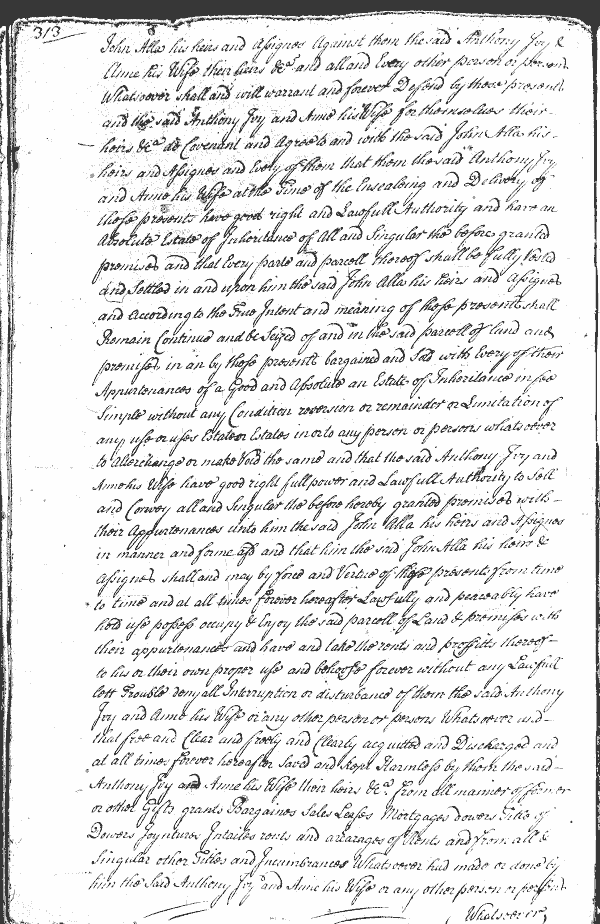 313
John Alla his heirs and Assignes Against them the said Anthony Ivy &
Anne his Wife their heirs &ca and all and Every other person or persons
Whatsoever shall and will warrant and forever Defend by these presents
and the said Anthony Ivy and Anne his Wife for themselves their
heirs &ca do Covenant and Agree to and with the said John Alla his
heirs and Assignes and Every of them that them the said Anthony Ivy
and Anne his Wife at the Time of the Ensealeing and Delivery of
those presents have good right and Lawfull Authority and have an
Absolute Estate of Inheritance of All and Singular the before granted
premises and that Every parte and parcell thereof shall be fully
and Settled in and upon him the said John Alla his heirs and Assignes
and According to the True Intent and meaning of those presents shall
Remain Continue and be Seized of and in the said parcell of land and
premises in an by those presents bargained and Sold with Every of their
Appurtenances of a Good and Absolute an Estate of Inheritance in fee
Simple without any Condition reversion or remainder or Limitation of
any use or uses Estate or Estates in or to any person or persons whatsoever
to Alter change or make Void the same and that the said Anthony Ivy and
Anne his Wife have good right full power and Lawfull Authority to Sell
and Convey all and Singular the before hereby granted premises with
their Appurtenances unto him the said John Alla his heirs and Assignes
in manner and forme afsd and that him the said John Alla his heirs &
Assignes shall and may by force and Vertue of these presents from time
to time and at all times forever hereafter Lawfully and peaceably have
hold use posess occupy & Enjoy the said parcell of Land & premises with
their appurtenances and have and take the rents and proffitts thereof
to his or their own proper use and behoofe forever without any Lawfull
lett Trouble denyall Interruption or disturbance of them the said Anthony
Ivy and Anne his Wife or any other person or persons Whatsoever and
that free and Clear and freely and Clearly acquitted and Discharged and
at all times forever hereafter Saved and Kept Harmless by them the said
Anthony Ivy and Anne his Wife their heirs &ca. From all manner of former
or other Gifts grants Bargaines Sales Leases Mortgages dowers Title of
Dowers Joyntures Intailes rents and arrarages of Rents and from all &
Singular other Titles and Incumbrances Whatsoever had made or done by
him the Said Anthony Ivy and Anne his Wife or any other person or persons
Whatsoever